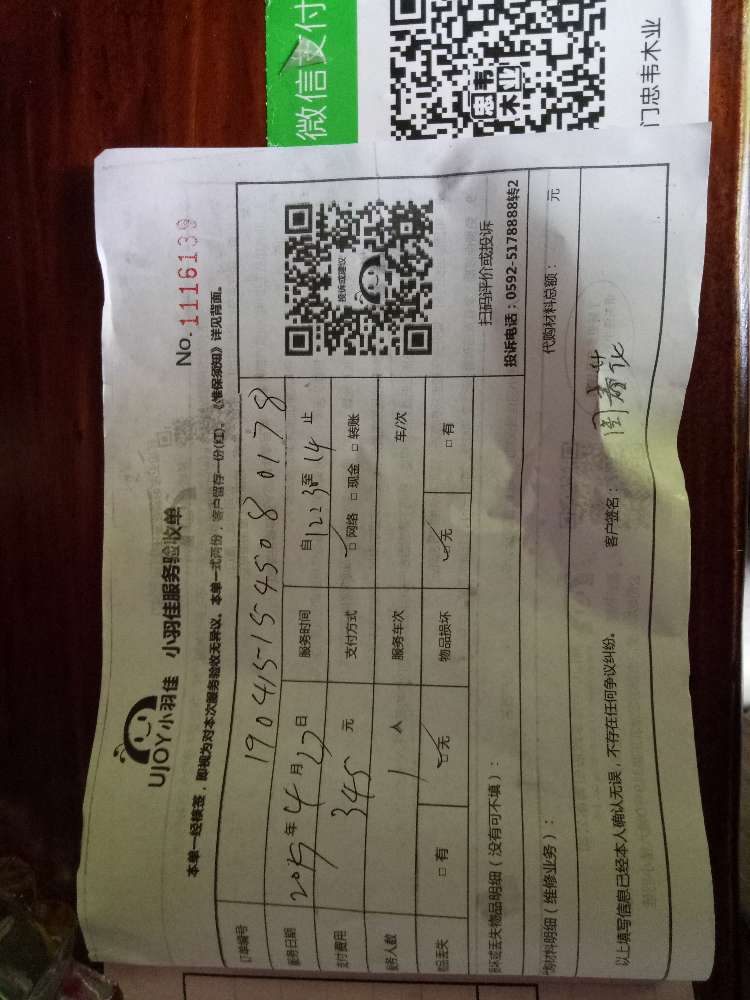 微信支付
忠韦
木业
门忠韦木业
UJOY小羽佳 小羽佳服务验收单
No. 1116130
本单一经核签，即视为对本次服务验收无异议。本单一式两份，客户留存一份(红)。《维保须知》详见背面。
订单编号 190415-154508 0178
服务日期 2019年4月17日 服务时间 自1223至14止
支付费用 345元 支付方式 □网络 □现金 □转账
服务人数 1人 服务车次 车/次
物品丢失 □有 □无 物品损坏 □无 □有
投诉或建议
扫码评价或投诉
投诉电话：0592-5178888转2
损坏或丢失物品明细（没有可不填）：
代购材料明细（维修业务）： 代购材料总额： 元
以上填写信息已经本人确认无误，不存在任何争议纠纷。 客户签名：